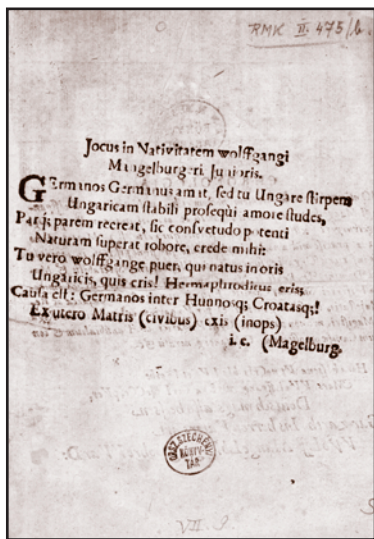 RMK II. 475/b.
Jocus in Nativitatem wolffgangi
Magelburgeri. Junioris.
GErmanos Germanus amat, sed tu Ungare stirpem
Ungaricam stabili prosequi amore studes,
Par sj parem recreat, sic consvetudo potenti
Naturam superat robore, crede mihi:
Tu vero wolffgange puer, qui natus in oris
Ungaricis, quis eris! Hermaphroditus eris;
Causa est: Germanos inter Hunnosq; Croatasq;!
Ex utero Matris (civibus) exis (inops)
i.e. (Magelburg.
ORSZ. SZÉCHÉNYI
KÖNYV-
TÁR